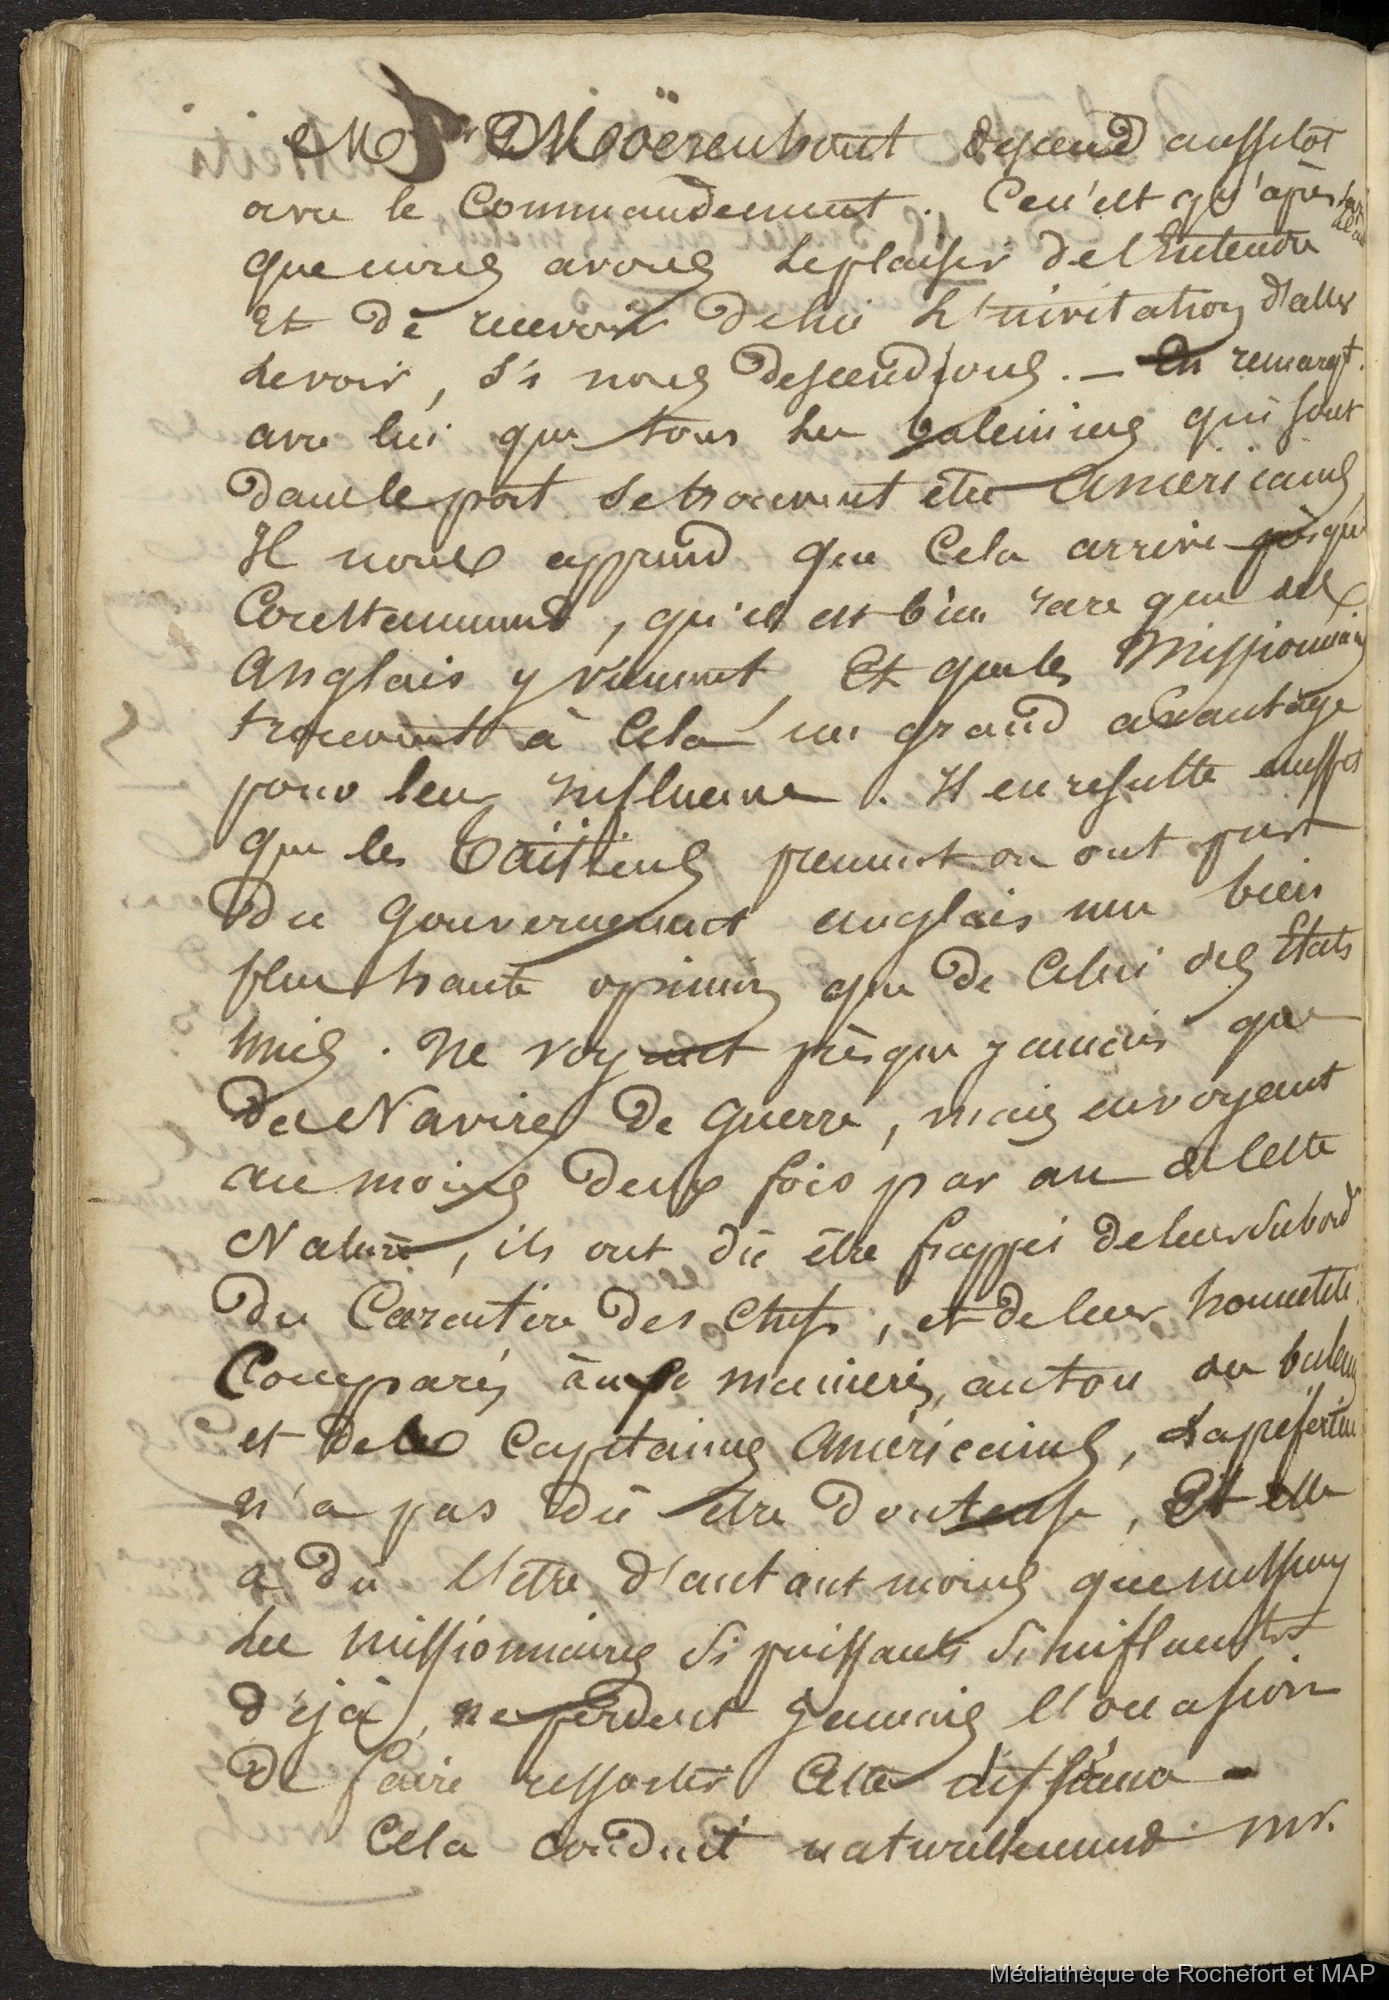 Mr Moërenhout descend aussitot
avec le Commandement. Ce n'est qu'apres
que nous avons le plaisir de l'Entendre
et de recevoir de lui L'invitation d'aller
le voir, si nous descendions. — En remarqt.
avec lui que tous les baleiniers qui sont
dans le port se trouvent être Américains
Il nous apprend que Cela arrive presque
Constamment, qu'il est bien rare que des
Anglais y viennent Et que les Missionnaires
trouvent à Cela un grand avantage
pour leur influence. Il en resulte aussi
que les Taïtiens prennent ou ont pris
du Gouvernement anglais une bien
plus haute opinion que de Celui des Etats
Unis. Ne voyant prèsque jamais que
des Navires de Guerre, mais en voyant
au moins deux fois par an de Cette
Nature, ils ont dû être frappés de leur abord
du Caractère des Chefs, et de leur honnêteté
Comparés aux manieres, au ton des baleiniers
et des Capitaines Américains, La préférence
n'a pas dû être douteuse, Et elle
a du L'être d'autant moins que
les missionnaires si puissants si influents
déjà, ne perdent jamais l'occasion
de faire ressortir Cette différence —
Cela conduit naturellement Mr.
Médiathèque de Rochefort et MAP